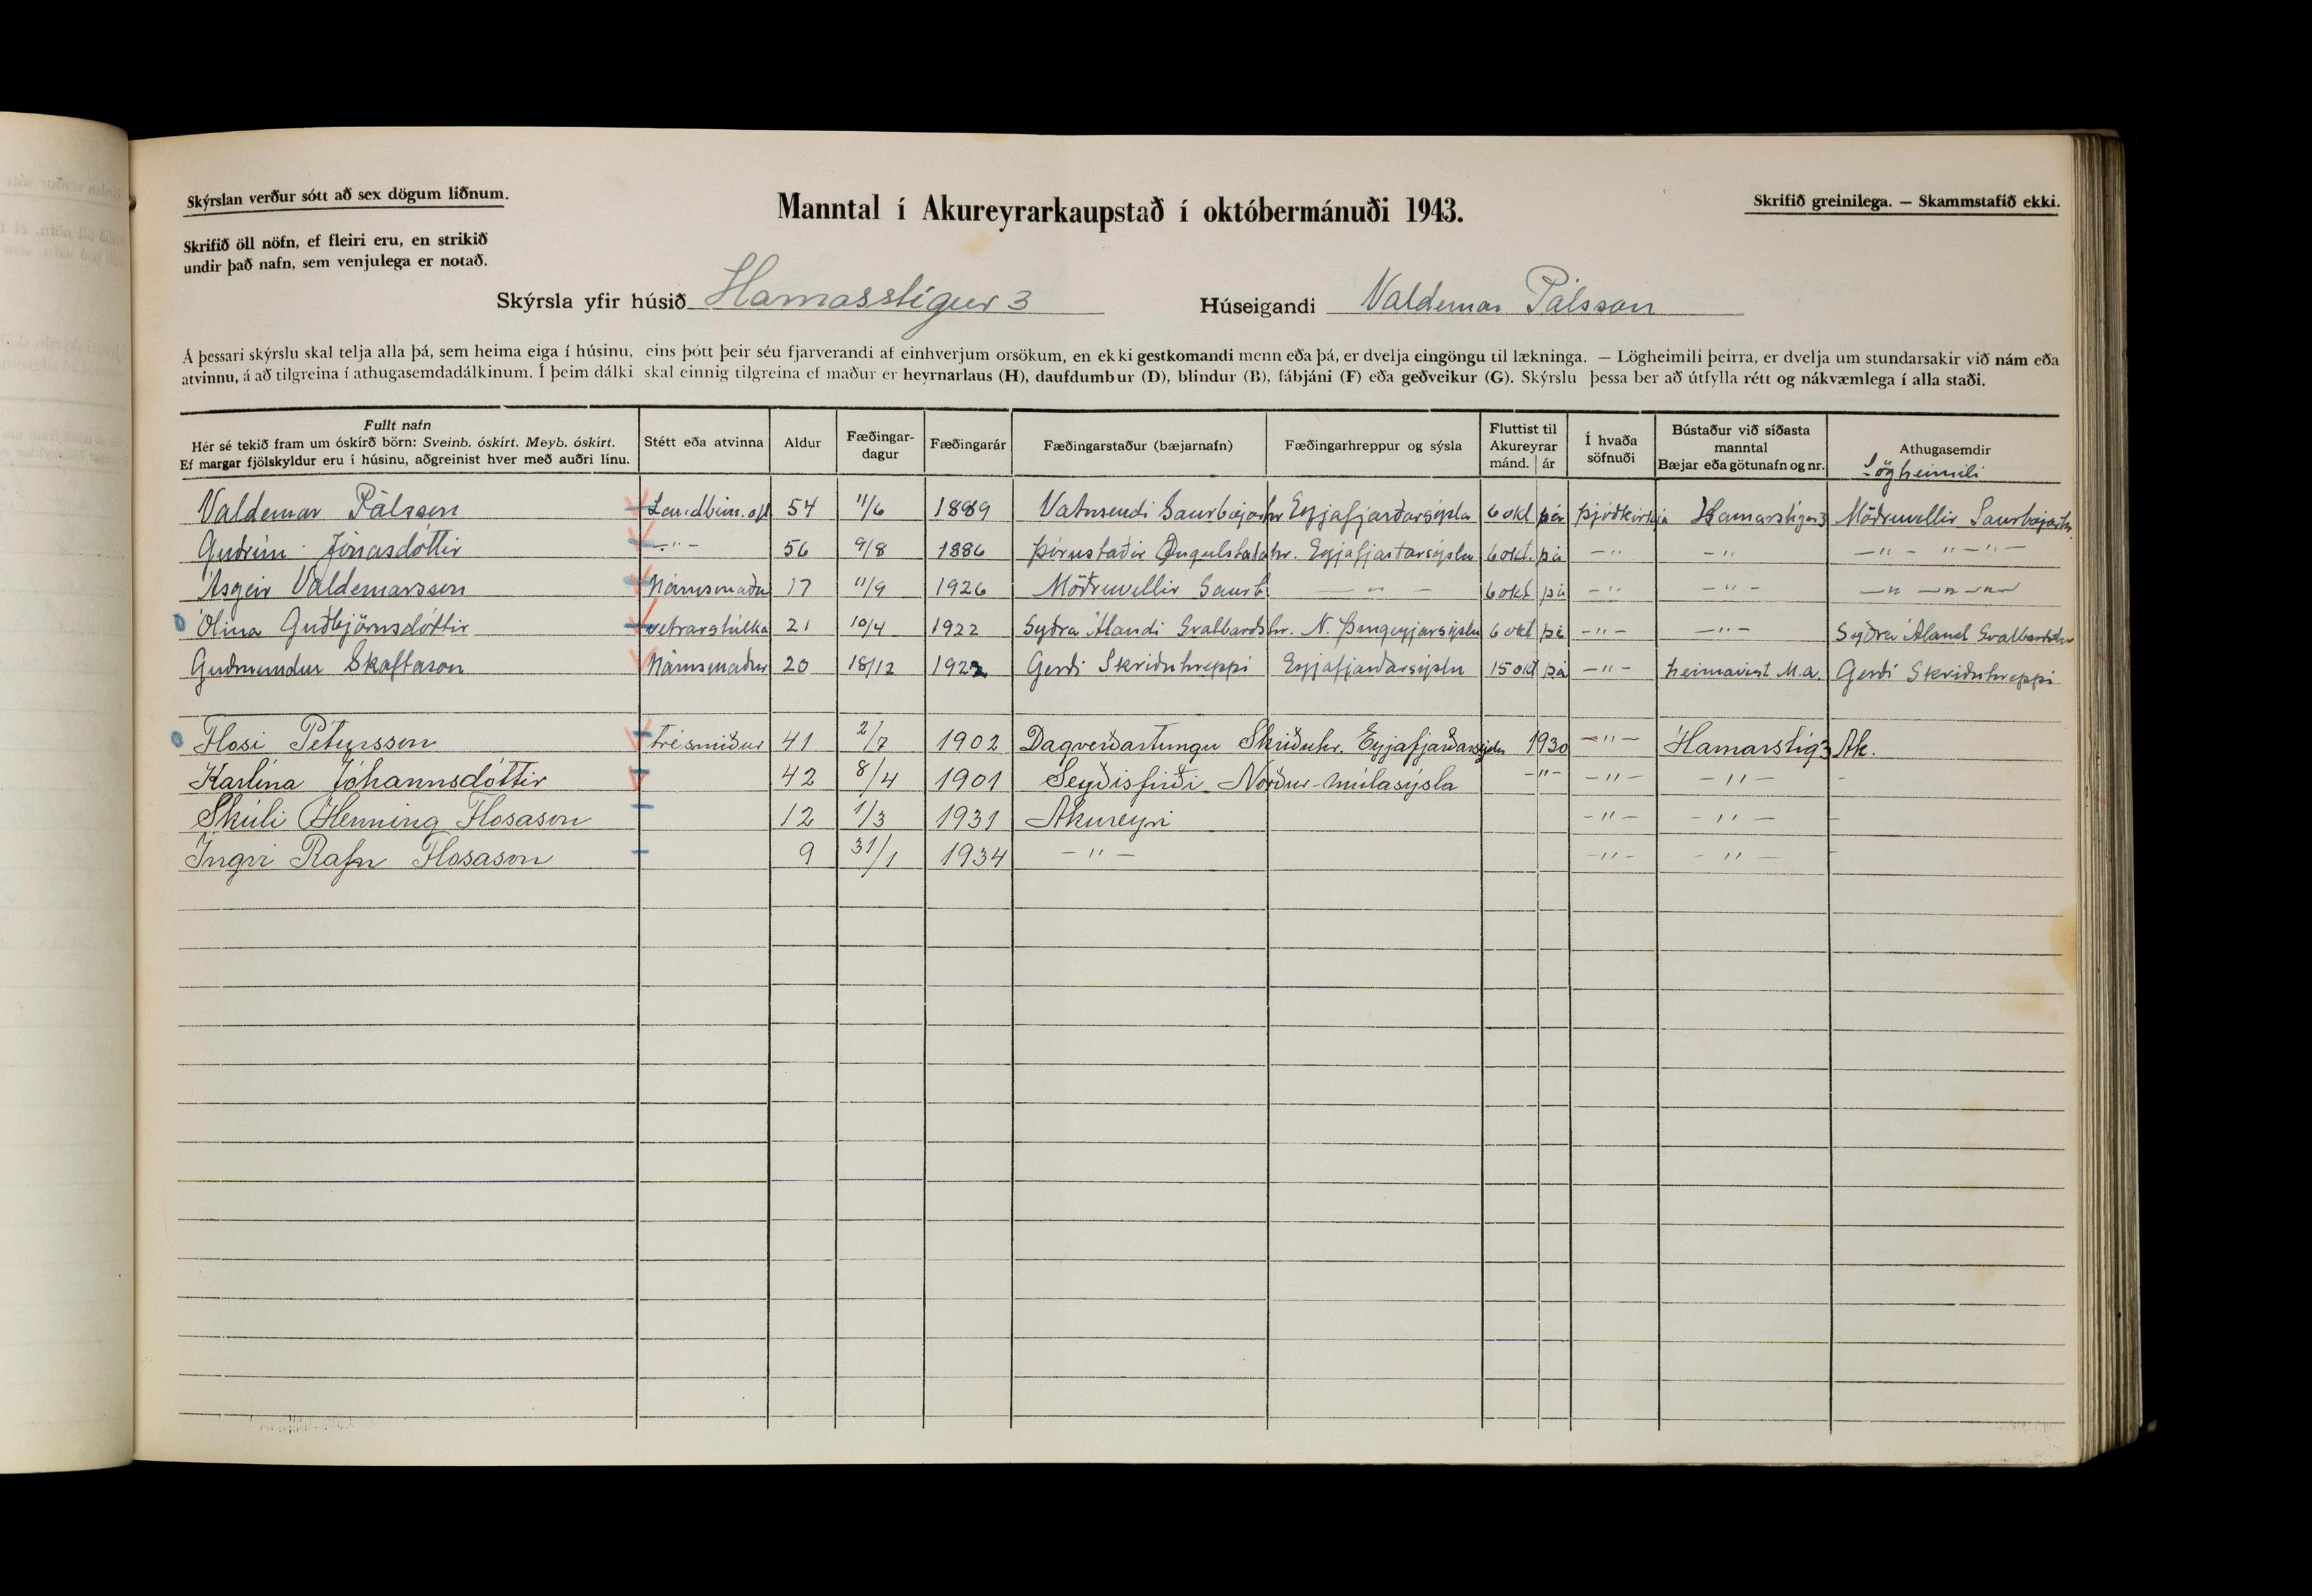 Skýrslan verður sótt að sex dögum liðnum.
Manntal í Akureyrarkaupstað í októbermánuði 1943.
Skrifið greinilega. — Skammstafið ekki.
Skrifið öll nöfn, ef fleiri eru, en strikið
undir það nafn, sem venjulega er notað.
Skýrsla yfir húsið Hamarsstígur 3 Húseigandi Valdemar Pálsson
Á þessari skýrslu skal telja alla þá, sem heima eiga í húsinu, eins þótt þeir séu fjarverandi af einhverjum orsökum, en ekki gestkomandi menn eða þá, er dvelja eingöngu til lækninga. — Lögheimili þeirra, er dvelja um stundarsakir við nám eða
atvinnu, á að tilgreina í athugasemdadálkinum. Í þeim dálki skal einnig tilgreina ef maður er heyrnarlaus (H), daufdumbur (D), blindur (B), fábjáni (F) eða geðveikur (G). Skýrslu þessa ber að útfylla rétt og nákvæmlega í alla staði.
Fullt nafn
Hér sé tekið fram um óskírð börn: Sveinb. óskírt. Meyb. óskírt.
Ef margar fjölskyldur eru í húsinu, aðgreinist hver með auðri línu.
Stétt eða atvinna
Aldur
Fæðingar-
dagur
Fæðingarár
Fæðingarstaður (bæjarnafn)
Fæðingarhreppur og sýsla
Fluttist til
Akureyrar
mánd. ár
Í hvaða
söfnuði
Bústaður við síðasta
manntal
Bæjar eða götunafn og nr.
Athugasemdir
Lögheimili
Valdemar Pálsson Landbún. 54 11/6 1889 Vatnsendi Saurbæjarhr Eyjafjarðarsýsla 6 okt þ.á Þjóðkirkja Hamarstígur 3 Möðruvellir Saurbæjarhr.
Guðrún Jónasdóttir —"— 56 9/8 1886 Þórustaðir Öngulstaðahr. Eyjafjarðarsýslu 6 okt. þá —"— —"— —"— "—"—
Ásgeir Valdemarsson Námsmaður 17 11/9 1926 Möðruvellir Saurb. — " — 6 okt þá —"— —"— —"— —"—"—
Ólína Guðbjörnsdóttir vetrarstúlka 21 10/4 1922 Syðra Álandi Svalbarðshr. N. Þingeyjarsýslu 6 okt þá —"— —"— Syðra Áland Svalbarðshr
Guðmundur Skaftason Námsmaður 20 18/12 1922 Gerði Skriðuhreppi Eyjafjarðarsýslu 15 okt þá —"— heimavist M.a. Gerði Skriðuhreppi
Flosi Pétursson trésmiður 41 2/7 1902 Dagverðartungu Skriðuhr. Eyjafjarðarsýslu 1930 —"— Hamarstíg 3 Ak.
Karlína Jóhannsdóttir 42 8/4 1901 Seyðisfirði Norður-múlasýsla —"— —"— —"— -
Skúli Henning Flosason 12 1/3 1931 Akureyri —"— —"— -
Ingvi Rafn Flosason 9 31/1 1934 —"— —"— —"— -